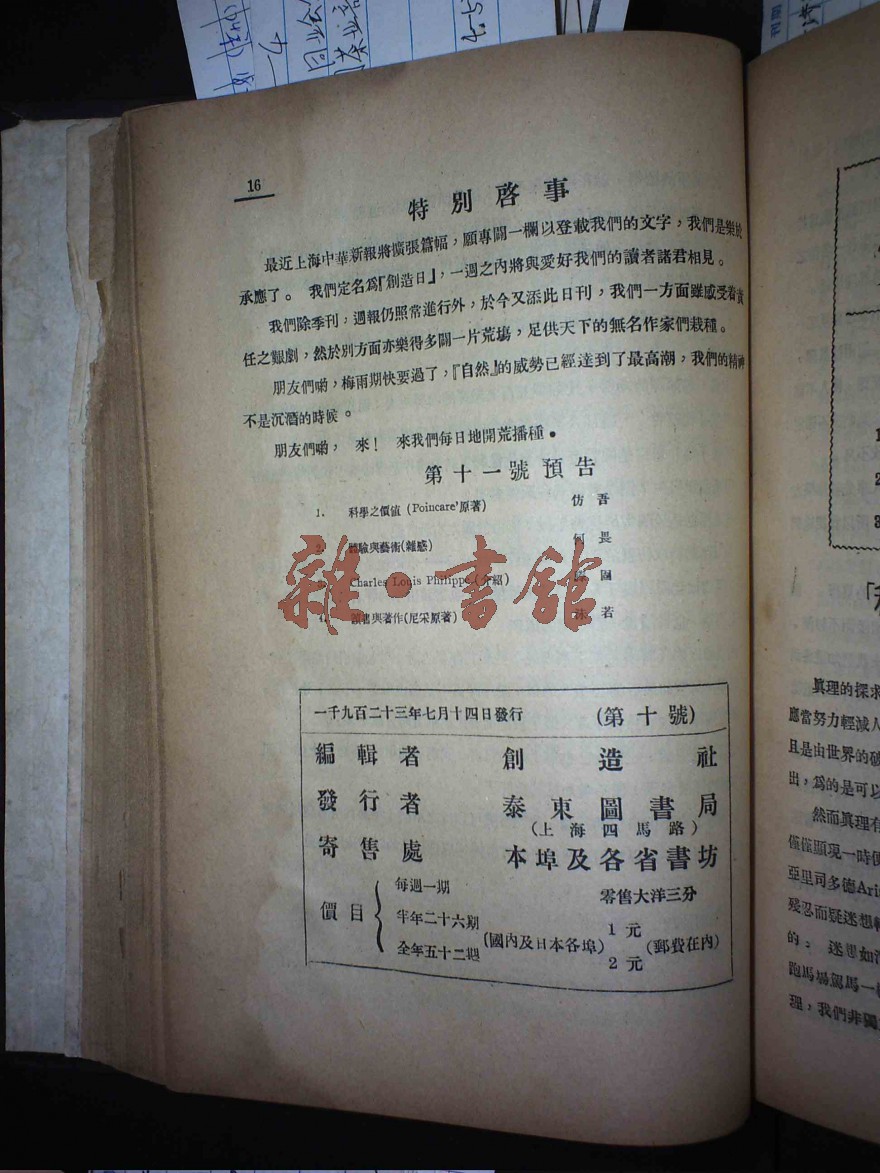 16
特別啓事
最近上海中華新報將擴張篇幅，願專闢一欄以登載我們的文字，我們是樂於
承應了。　我們定名爲『創造日』，一週之內將與愛好我們的讀者諸君相見。
我們除季刊，週報仍照常進行外，於今又添此日刊，我們一方面雖感受着責
任之艱劇，然於別方面亦樂得多闢一片荒塲，足供天下的無名作家們栽種。
朋友們喲，梅雨期快要過了，『自然』的威勢已經達到了最高潮，我們的精神
不是沉潛的時候。
朋友們喲，　來！　來我們每日地開荒播種．
第十一號預告
1. 科學之價值 (Poincare'原著) 仿吾
2. 體驗與藝術(雜感) 何畏
Charles Louis Philippe (介紹)
4. 讀書與著作(尼采原著) 沫若
雜·書館
一千九百二十三年七月十四日發行 (第十號)
編輯者 創造社
發行者 泰東圖書局
(上海四馬路)
寄售處 本埠及各省書坊
價目
每週一期 零售大洋三分
半年二十六期 1元
(國內及日本各埠) (郵費在內)
全年五十二期 2元
1
2
3
眞理的探求
應當努力輕減人
且是由世界的破
出，爲的是可以
然而眞理有
僅僅顯現一時便
亞里司多德Ari
殘忍而疑迷想
的。 迷想如
跑馬場駕馬一
理，我們非獨